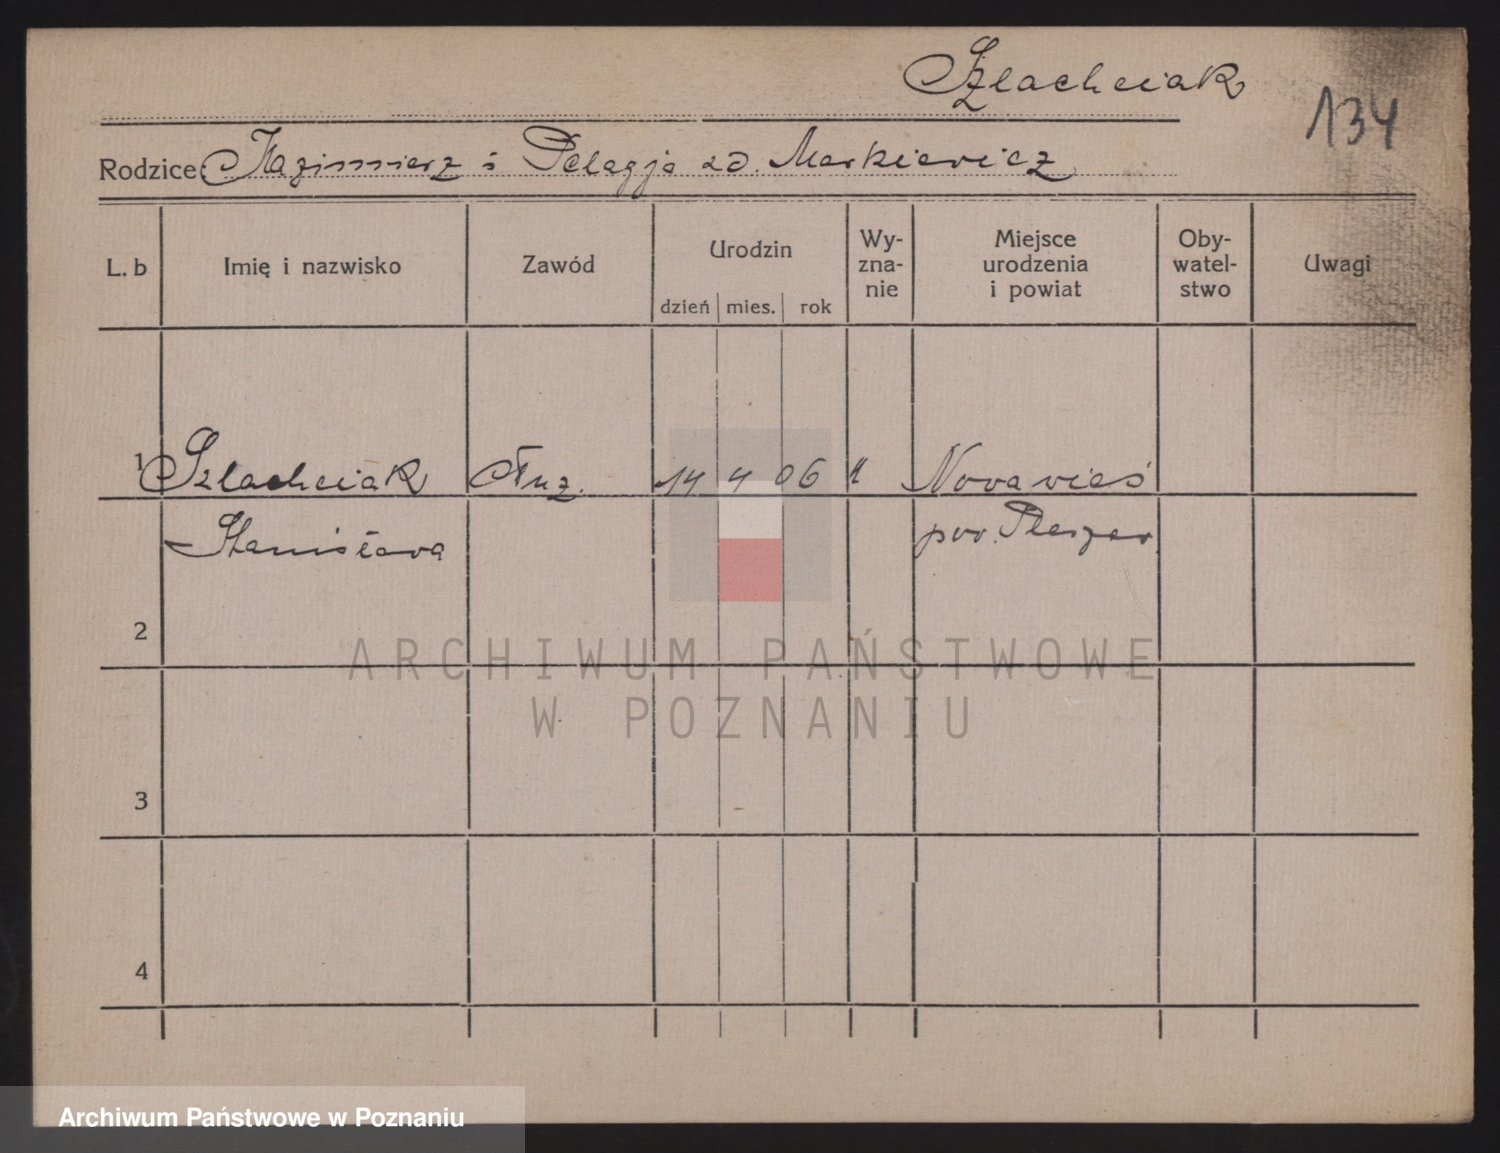 Szlachciak
134
Rodzice: Kazimierz i Pelagja zd. Markiewicz
L. b Imię i nazwisko Zawód Urodzin Wy- zna- nie Miejsce urodzenia i powiat Oby- watel- stwo Uwagi
dzień mies. rok
1 Szlachciak służ. 14 4 06 k Nowawieś
Stanisława pow. Pleszew
2
3
4
ARCHIWUM PAŃSTWOWE
W POZNANIU
Archiwum Państwowe w Poznaniu